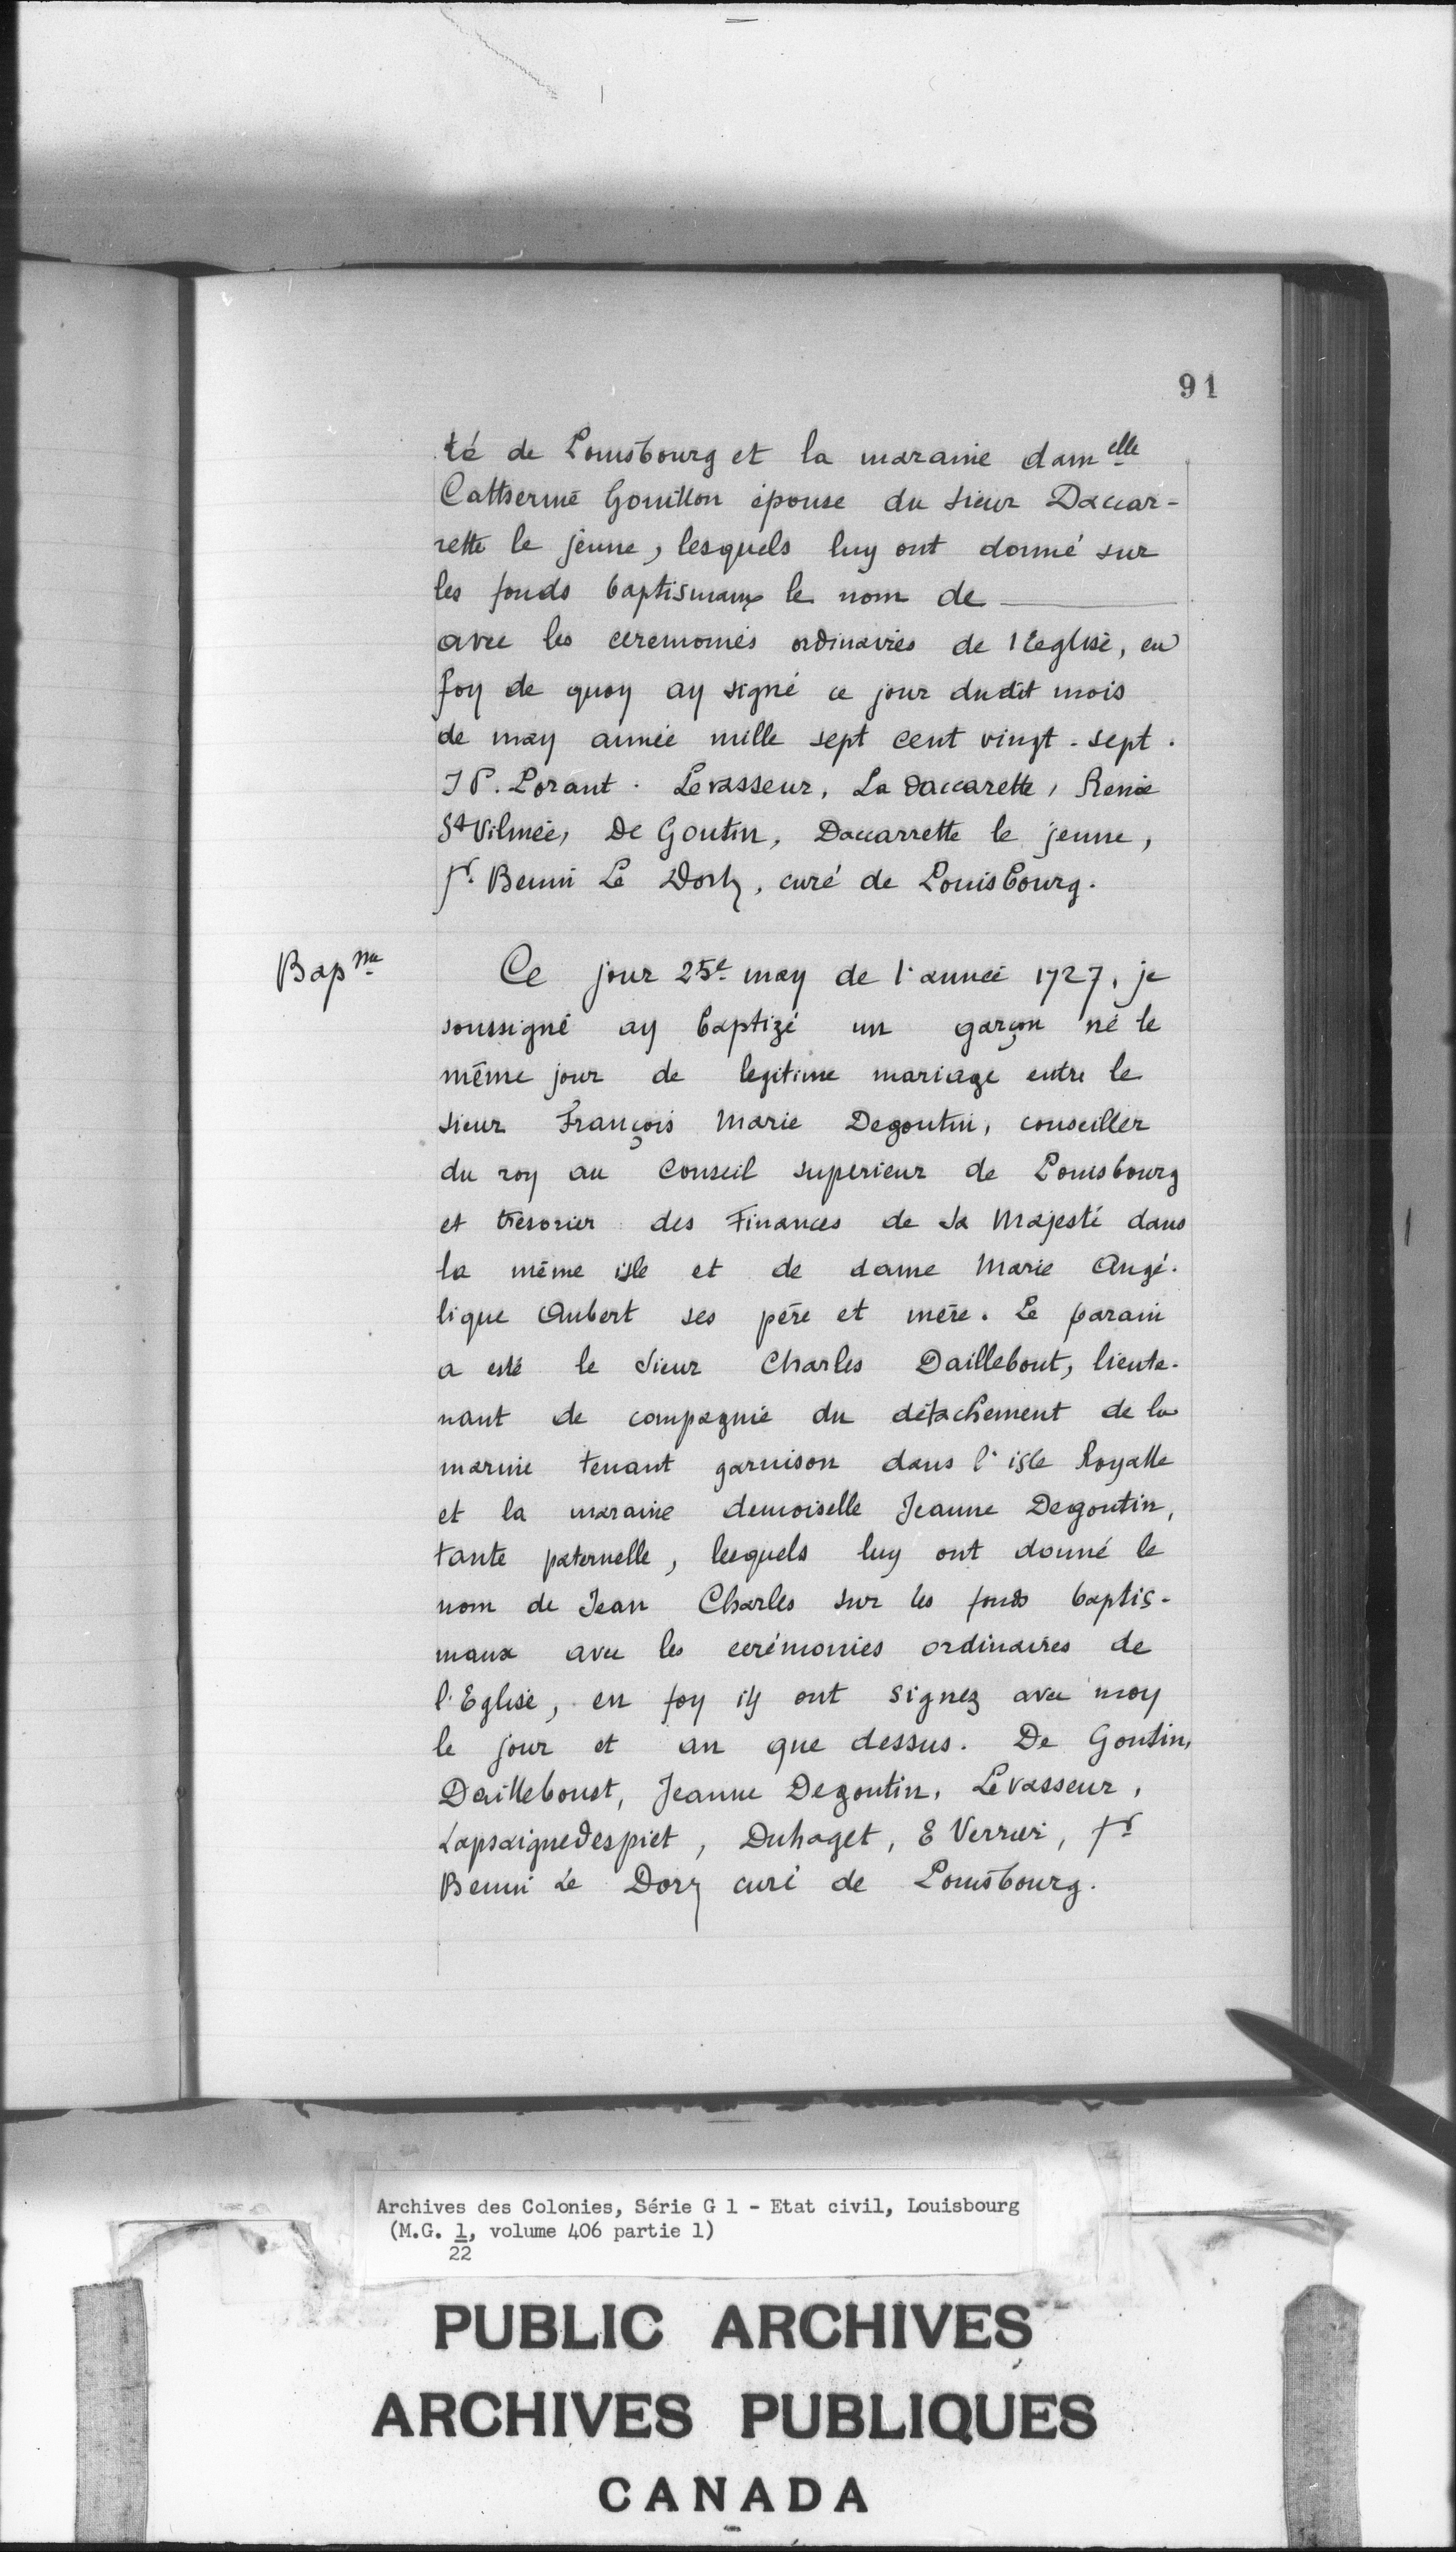 91
té de Louisbourg et la maraine dam elle
Catherine Gonillon épouse du sieur Daccar-
rette le jeune, lesquels luy ont donné sur
les fonds baptismaux le nom de
avec les ceremonies ordinaires de l'Eglise, en
foy de quoy ay signé ce jour dudit mois
de may année mille sept cent vingt-sept.
J P. Lorant. Levasseur, La Daccarette, Renée
St Vilmée, De Goutin, Daccarrette le jeune,
fr. Benin Le Dorz, curé de Louisbourg.
Bap me
Ce jour 25e may de l'année 1727, je
soussigné ay baptizé un garçon né le
même jour de legitime mariage entre le
sieur François Marie Degoutin, conseiller
du roy au Conseil superieur de Louisbourg
et tresorier des Finances de Sa Majesté dans
la même isle et de dame Marie Angé-
lique Aubert ses père et mère. Le parain
a esté le sieur Charles Daillebout, lieute-
nant de compagnie du détachement de la
marine tenant garnison dans l'isle Royalle
et la maraine demoiselle Jeanne Degoutin,
tante paternelle, lesquels luy ont donné le
nom de Jean Charles sur les fonds baptis-
maux avec les cerémonies ordinaires de
l'Eglise, en foy ils ont signez avec moy
le jour et an que dessus. De Goutin,
Dailleboust, Jeanne Degoutin, Levasseur,
Lapsaignedespiet, Duhaget, E Verrier, fr
Benin Le Dorz curé de Louisbourg.
Archives des Colonies, Série G 1 - Etat civil, Louisbourg
(M.G. 1, volume 406 partie 1)
22
PUBLIC ARCHIVES
ARCHIVES PUBLIQUES
CANADA